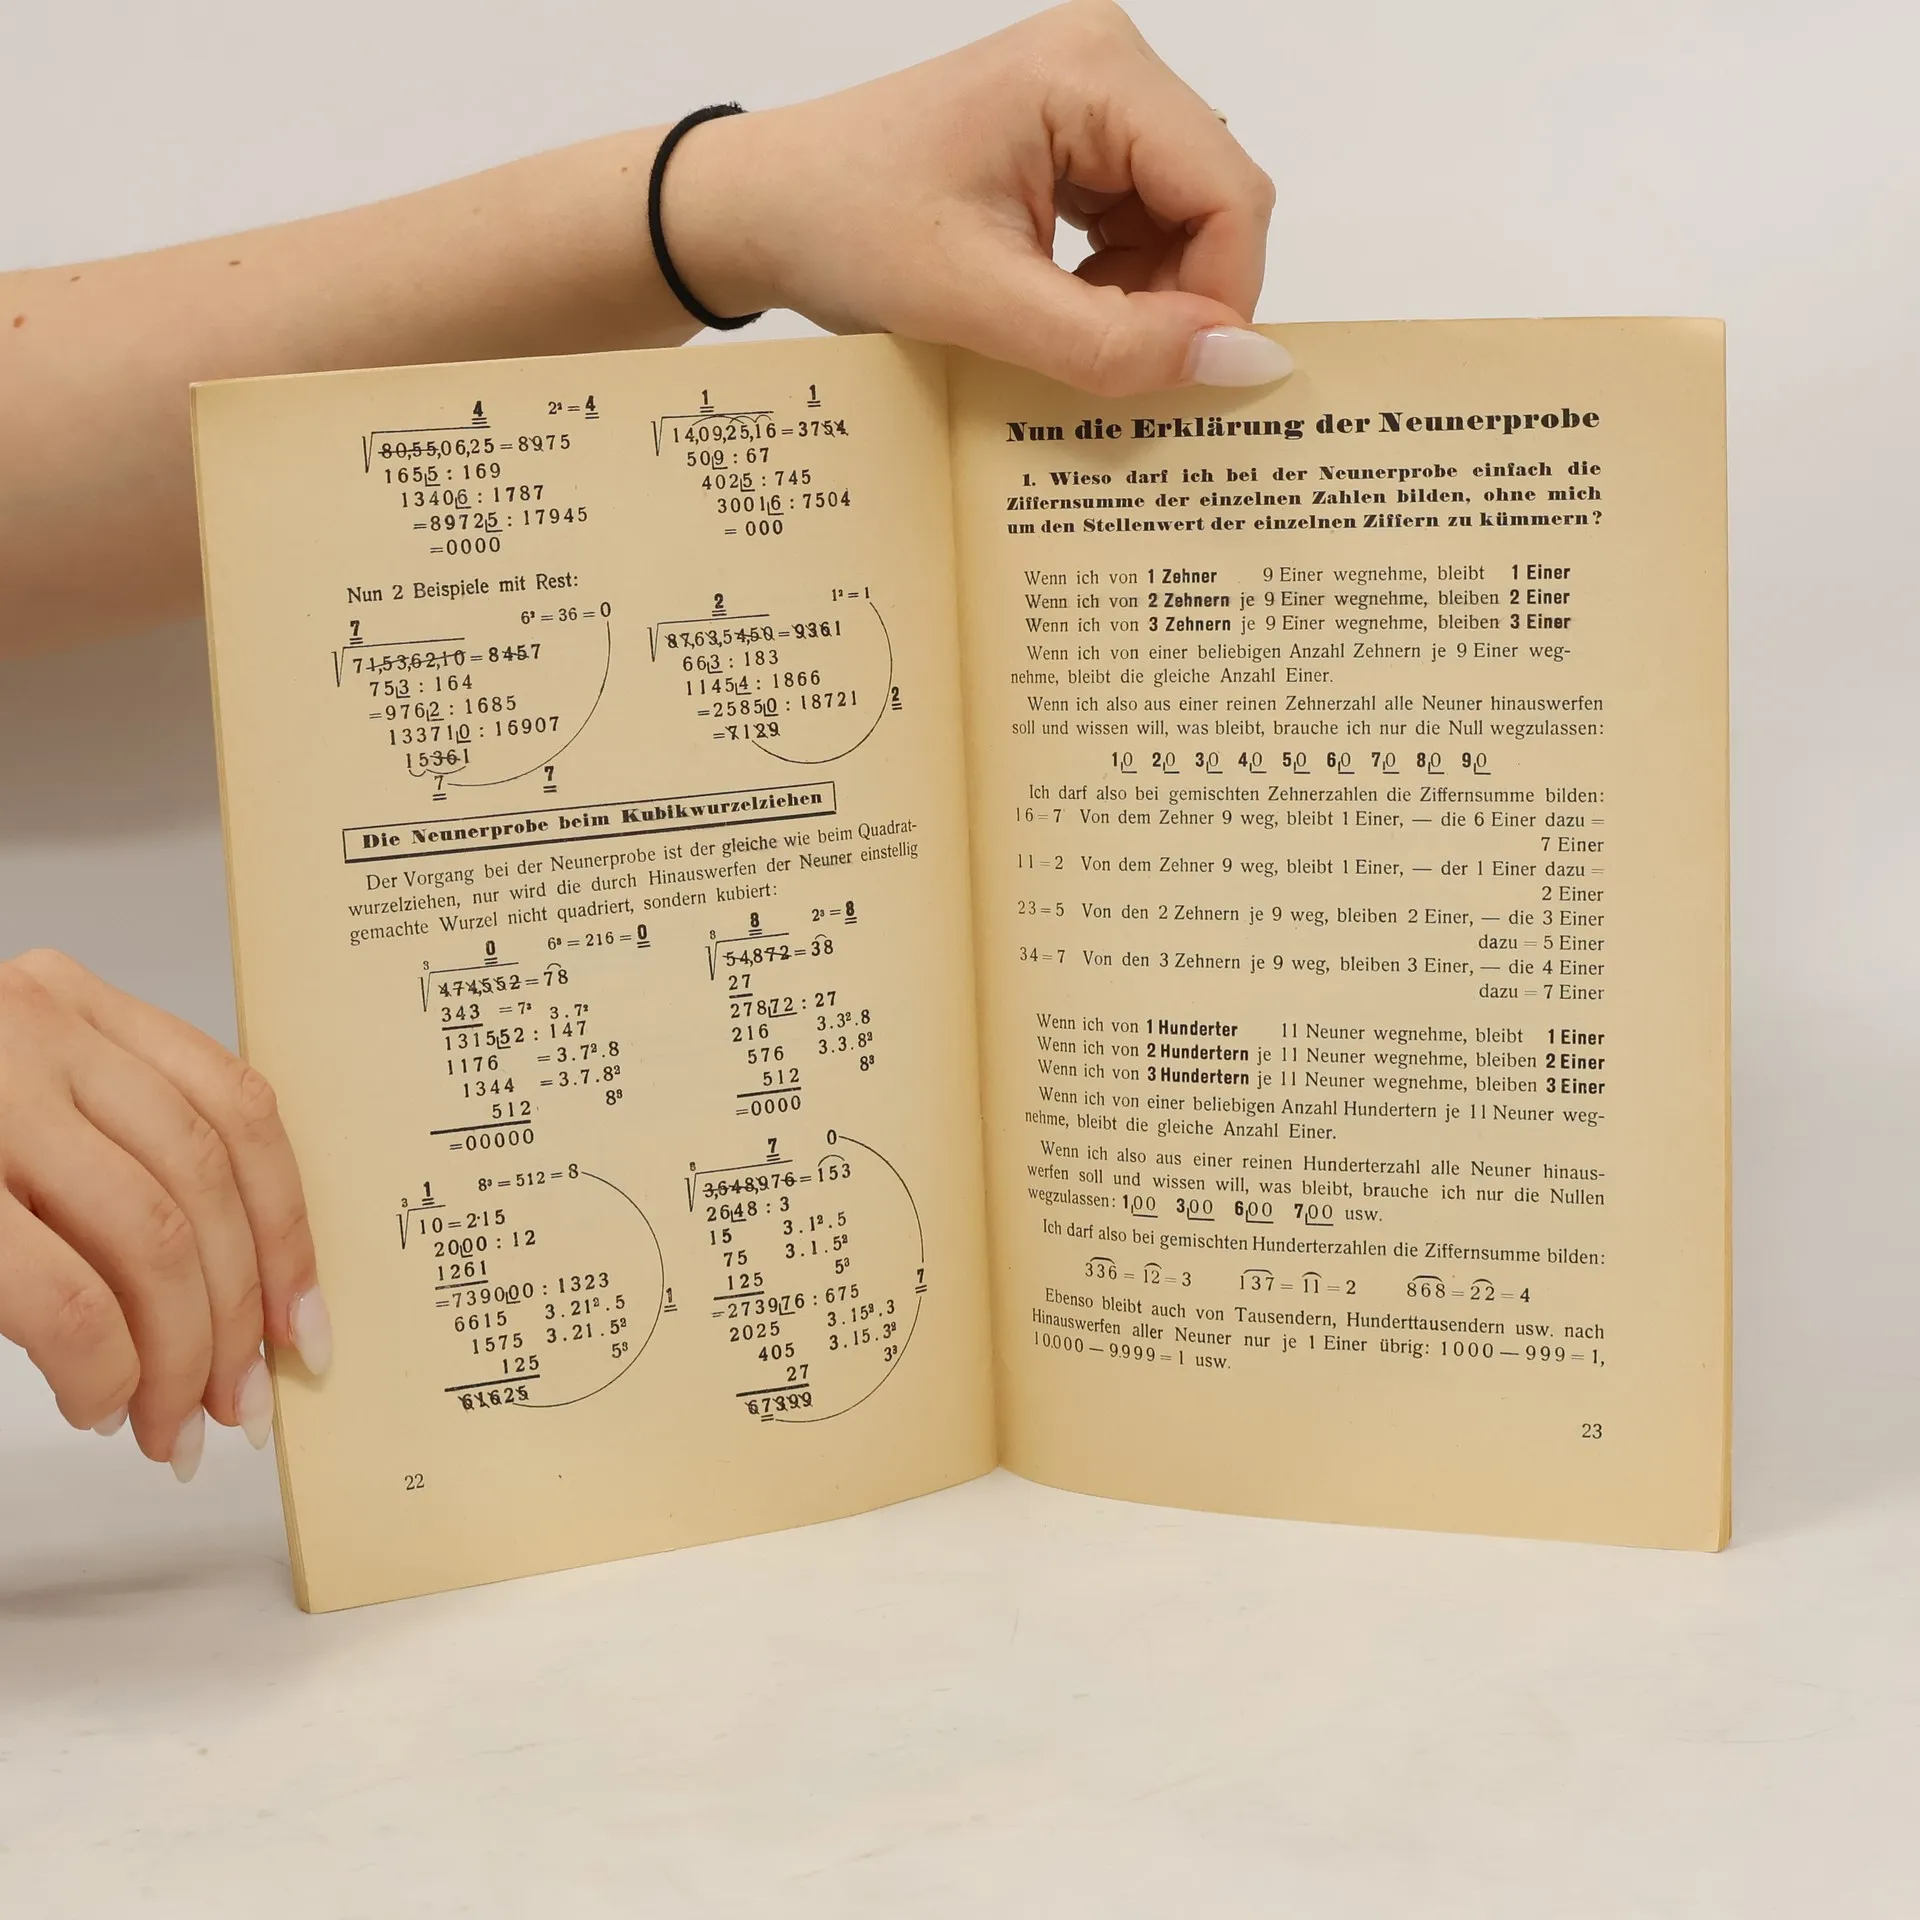 4 2² = 4
√80,55,06,25 = 8975
1655 : 169
13406 : 1787
=89725 : 17945
=0000
1 1
√14,09,25,16 = 3754
509 : 67
4025 : 745
30016 : 7504
= 000
Nun 2 Beispiele mit Rest:
7 6² = 36 = 0
√71,53,62,10 = 8457
753 : 164
=9762 : 1685
133710 : 16907
15361
7 7
2 1² = 1
√87,63,54,50 = 9361
663 : 183
11454 : 1866
=25850 : 18721
=7129
2
Die Neunerprobe beim Kubikwurzelziehen
Der Vorgang bei der Neunerprobe ist der gleiche wie beim Quadrat-
wurzelziehen, nur wird die durch Hinauswerfen der Neuner einstellig
gemachte Wurzel nicht quadriert, sondern kubiert:
0 6³ = 216 = 0
³√474,552 = 78
343 = 7³ 3.7²
131552 : 147
1176 = 3.7².8
1344 = 3.7.8²
512 8³
=00000
8 2³ = 8
³√54,872 = 38
27
27872 : 27
216 3.3².8
576 3.3.8²
512 8³
=0000
1 8³ = 512 = 8
³√10 = 2·15
2000 : 12
1261
=739000 : 1323
6615 3.21².5
1575 3.21.5²
125 5³
61625
1
7 0
³√3,648,976 = 153
2648 : 3
15 3.1².5
75 3.1.5²
125 5³
=273976 : 675
2025 3.15².3
405 3.15.3²
27 3³
67399
7
22
Nun die Erklärung der Neunerprobe
1. Wieso darf ich bei der Neunerprobe einfach die
Ziffernsumme der einzelnen Zahlen bilden, ohne mich
um den Stellenwert der einzelnen Ziffern zu kümmern?
Wenn ich von 1 Zehner 9 Einer wegnehme, bleibt 1 Einer
Wenn ich von 2 Zehnern je 9 Einer wegnehme, bleiben 2 Einer
Wenn ich von 3 Zehnern je 9 Einer wegnehme, bleiben 3 Einer
Wenn ich von einer beliebigen Anzahl Zehnern je 9 Einer weg-
nehme, bleibt die gleiche Anzahl Einer.
Wenn ich also aus einer reinen Zehnerzahl alle Neuner hinauswerfen
soll und wissen will, was bleibt, brauche ich nur die Null wegzulassen:
10 20 30 40 50 60 70 80 90
Ich darf also bei gemischten Zehnerzahlen die Ziffernsumme bilden:
16 = 7 Von dem Zehner 9 weg, bleibt 1 Einer, — die 6 Einer dazu =
7 Einer
11 = 2 Von dem Zehner 9 weg, bleibt 1 Einer, — der 1 Einer dazu =
2 Einer
23 = 5 Von den 2 Zehnern je 9 weg, bleiben 2 Einer, — die 3 Einer
dazu = 5 Einer
34 = 7 Von den 3 Zehnern je 9 weg, bleiben 3 Einer, — die 4 Einer
dazu = 7 Einer
Wenn ich von 1 Hunderter 11 Neuner wegnehme, bleibt 1 Einer
Wenn ich von 2 Hundertern je 11 Neuner wegnehme, bleiben 2 Einer
Wenn ich von 3 Hundertern je 11 Neuner wegnehme, bleiben 3 Einer
Wenn ich von einer beliebigen Anzahl Hundertern je 11 Neuner weg-
nehme, bleibt die gleiche Anzahl Einer.
Wenn ich also aus einer reinen Hunderterzahl alle Neuner hinaus-
werfen soll und wissen will, was bleibt, brauche ich nur die Nullen
wegzulassen: 100 300 600 700 usw.
Ich darf also bei gemischten Hunderterzahlen die Ziffernsumme bilden:
336 = 12 = 3 137 = 11 = 2 868 = 22 = 4
Ebenso bleibt auch von Tausendern, Hunderttausendern usw. nach
Hinauswerfen aller Neuner nur je 1 Einer übrig: 1000 — 999 = 1,
10.000 — 9.999 = 1 usw.
23